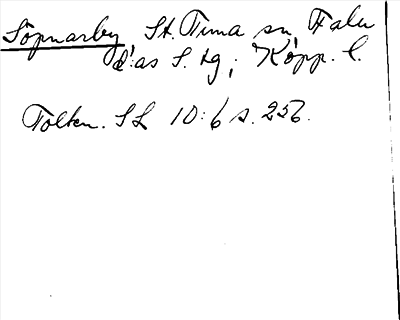 Söpnarby St. Tuna sn, Falu
d:as S. tg; Köpp. l.
Tolken. SL 10:6 s. 256.